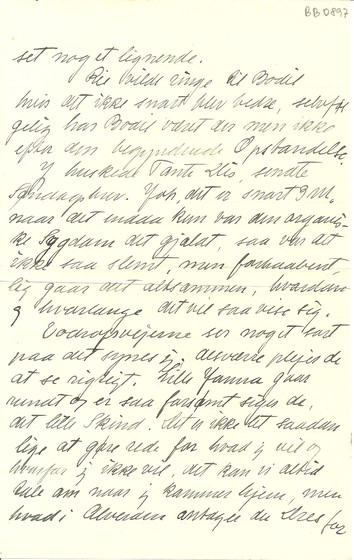 BB0897
set noget lignende.
Pil vilde ringe til Bodil
hvis det ikke snart blev bedre, selvføl-
gelig har Bodil været der men ikke
efter den begyndende Opstandelse.
I huskede Tante Liis, sendte
Jo, det er snart 9 M.,
naar det endda kun var den organis-
ke Sygdom det gjaldt, saa var det
ikke saa slemt, men forhaabent-
lig gaar det altsammen, hvordan
og hvorlange det vil saa vise sig.
ser noget sort
paa det synes jeg, desværre plejer de
at se rigtigt. Lille Hanna gaar
rundt og er saa forsømt siges de,
det lille Skind. Det er ikke det saadan
lige at gøre rede for hvad jeg vil og
hvorfor jeg ikke vil, det kan vi altid
tale om naar jeg kommer hjem, men
hvad i Alverden antager du for